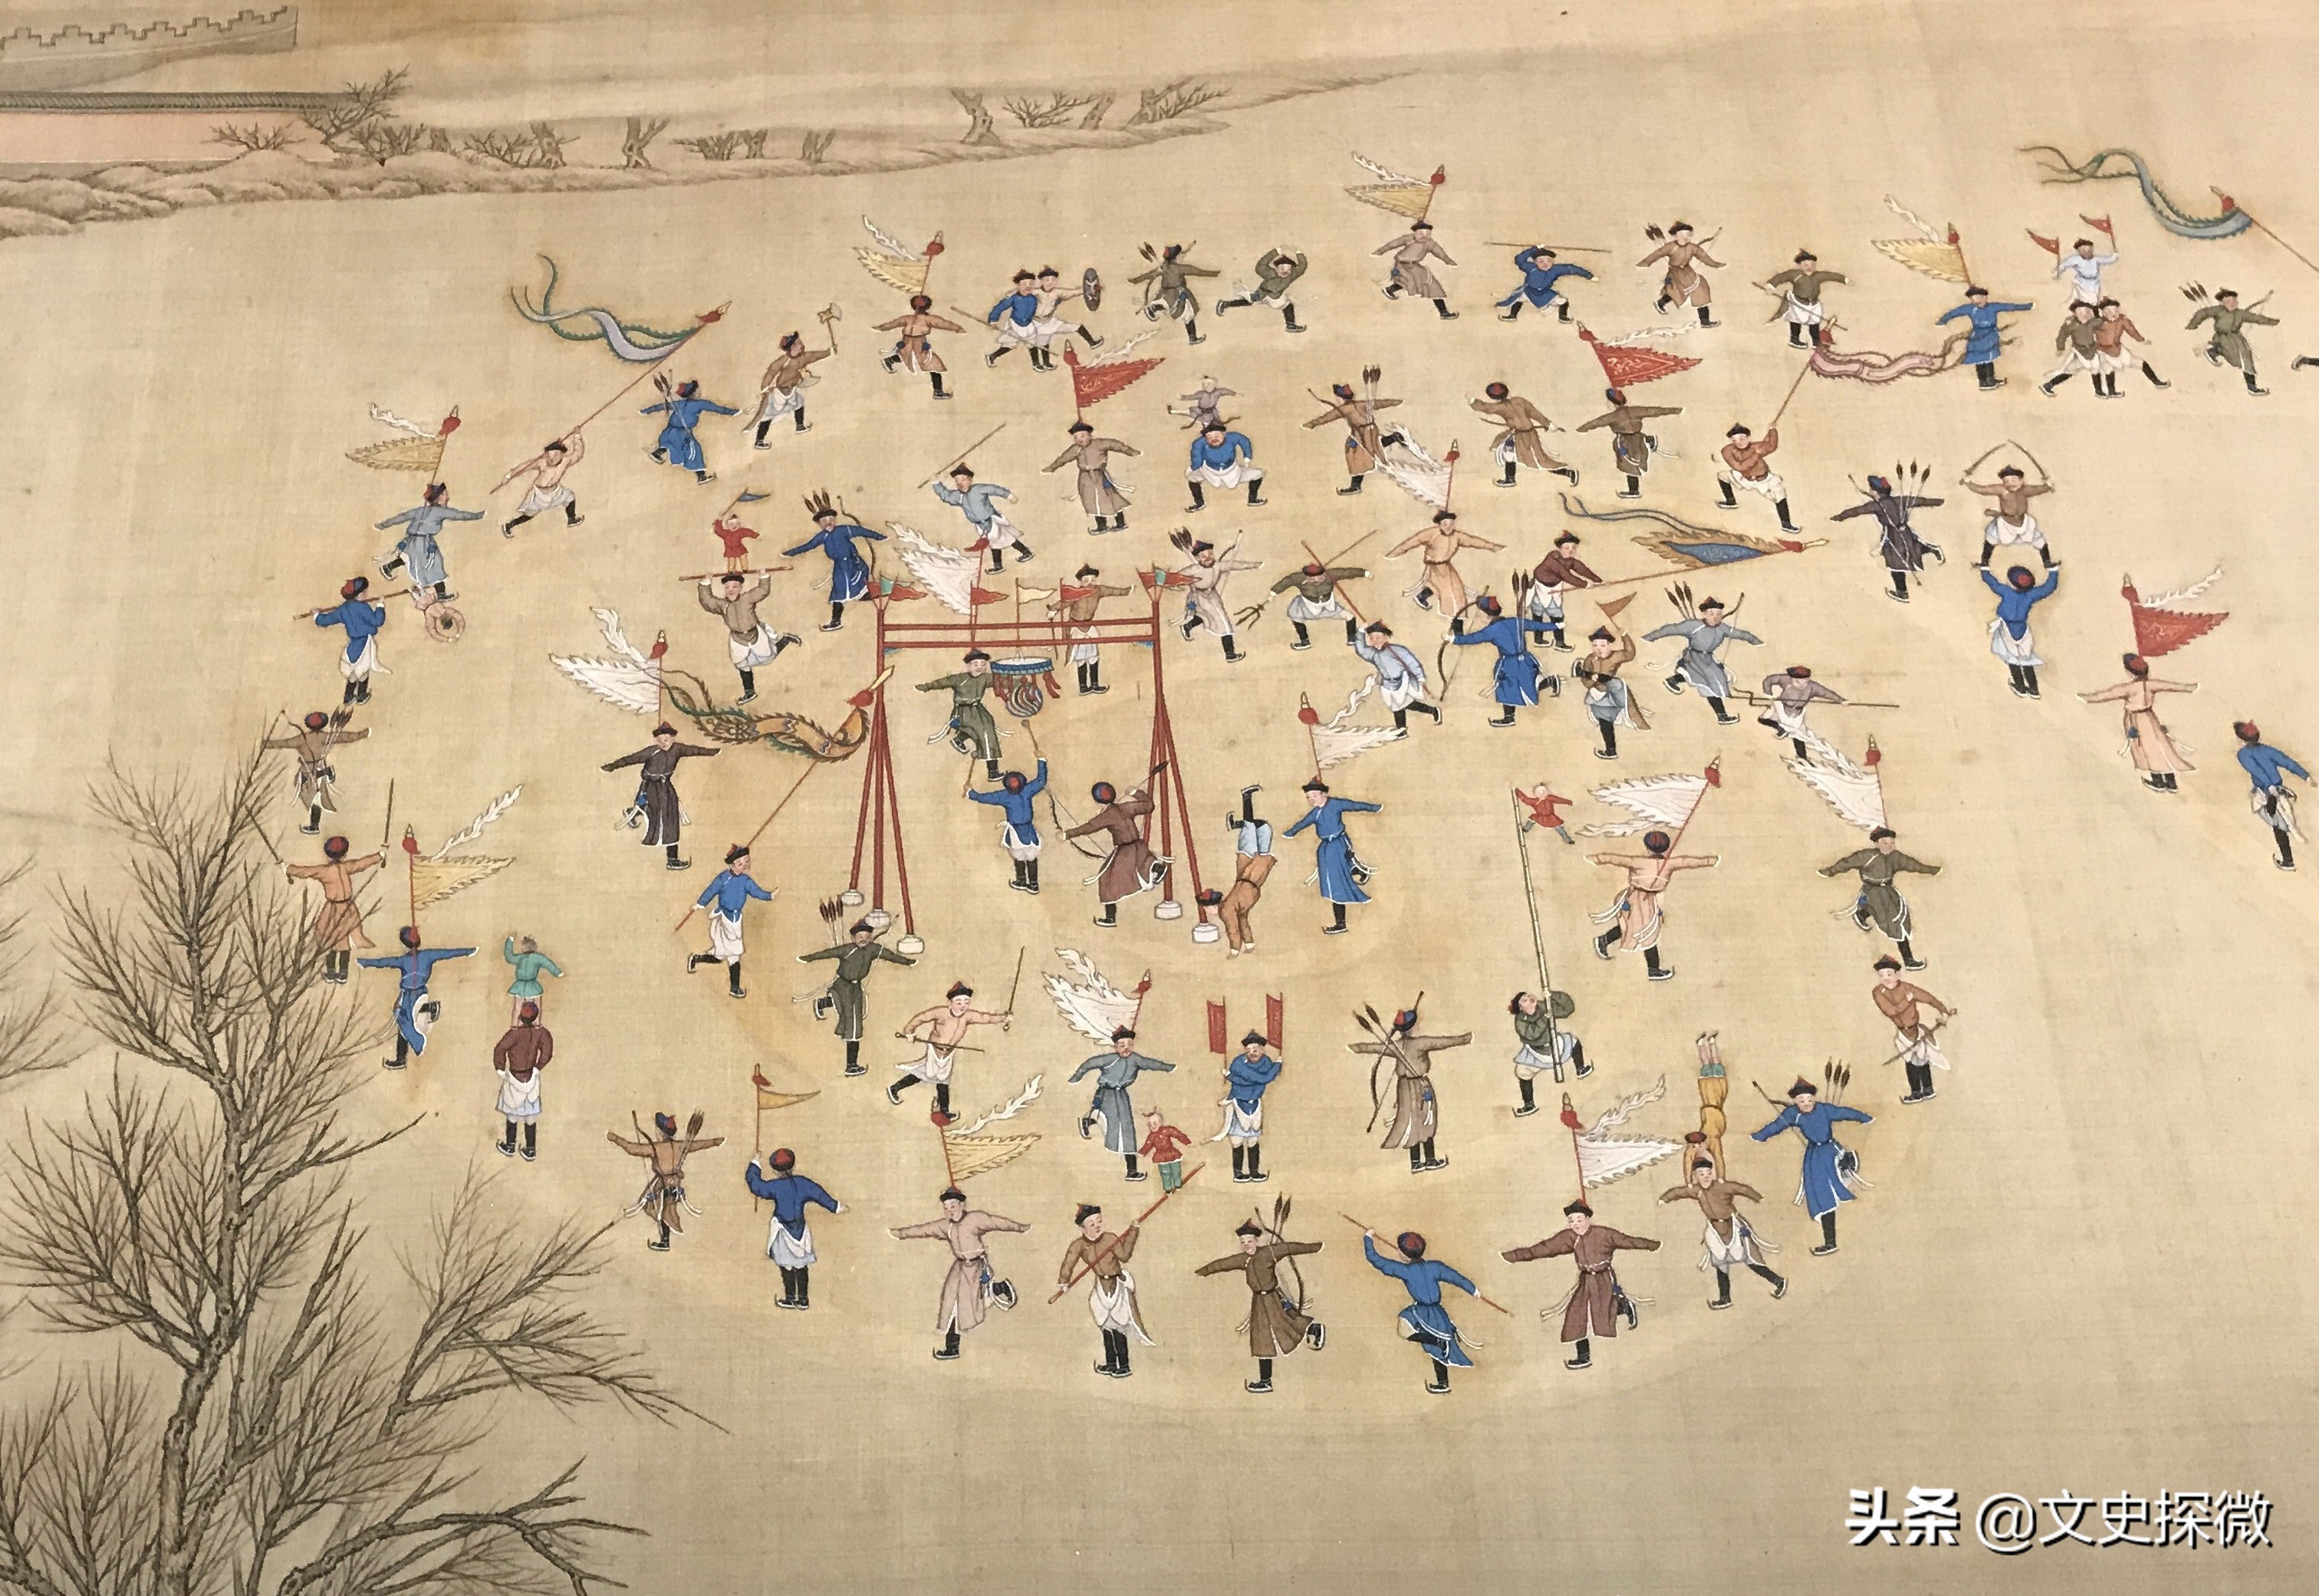 头条 @文史探微